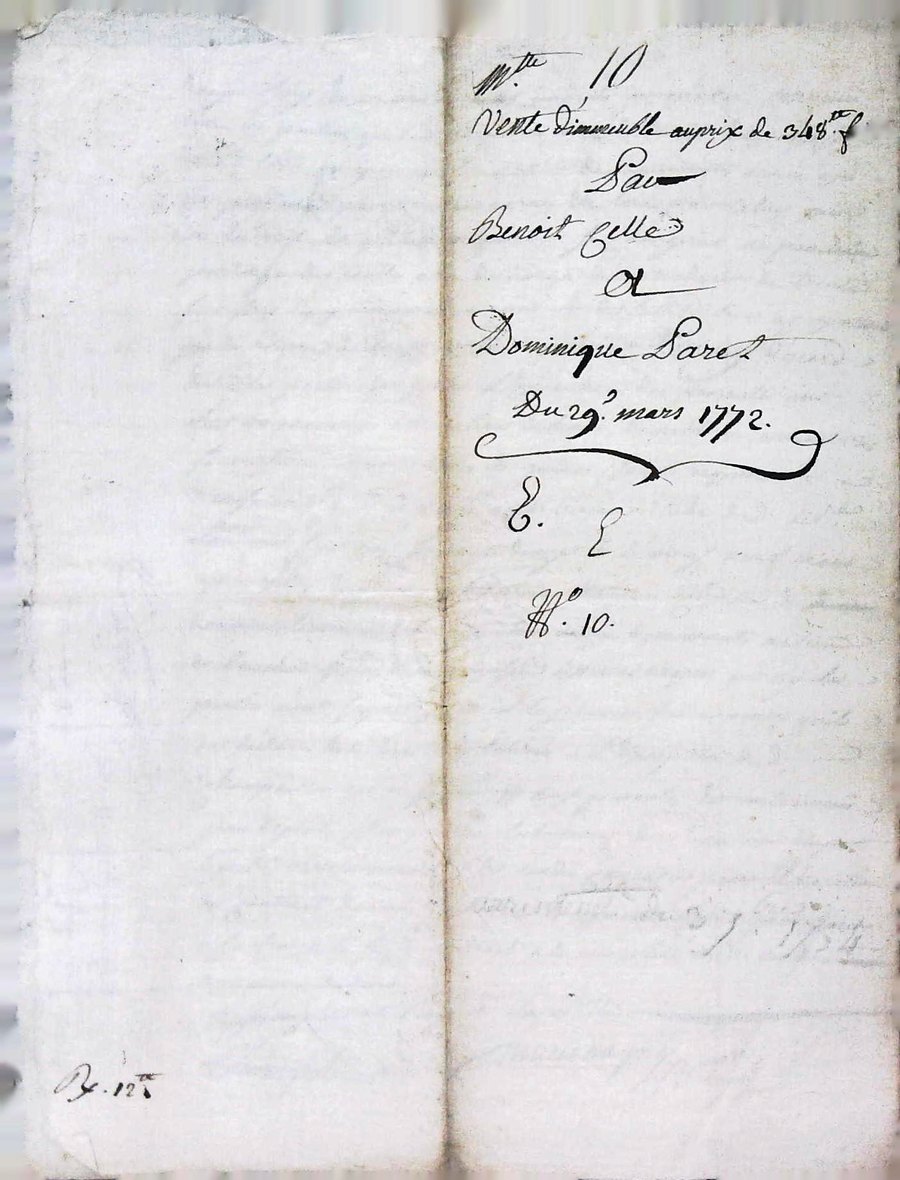 Mtte 10
Vente d'immeuble au prix de 348tt
Par
Benoit Celle
A
Dominique Paret
Du 29e. mars 1772.
E. E
No. 10.